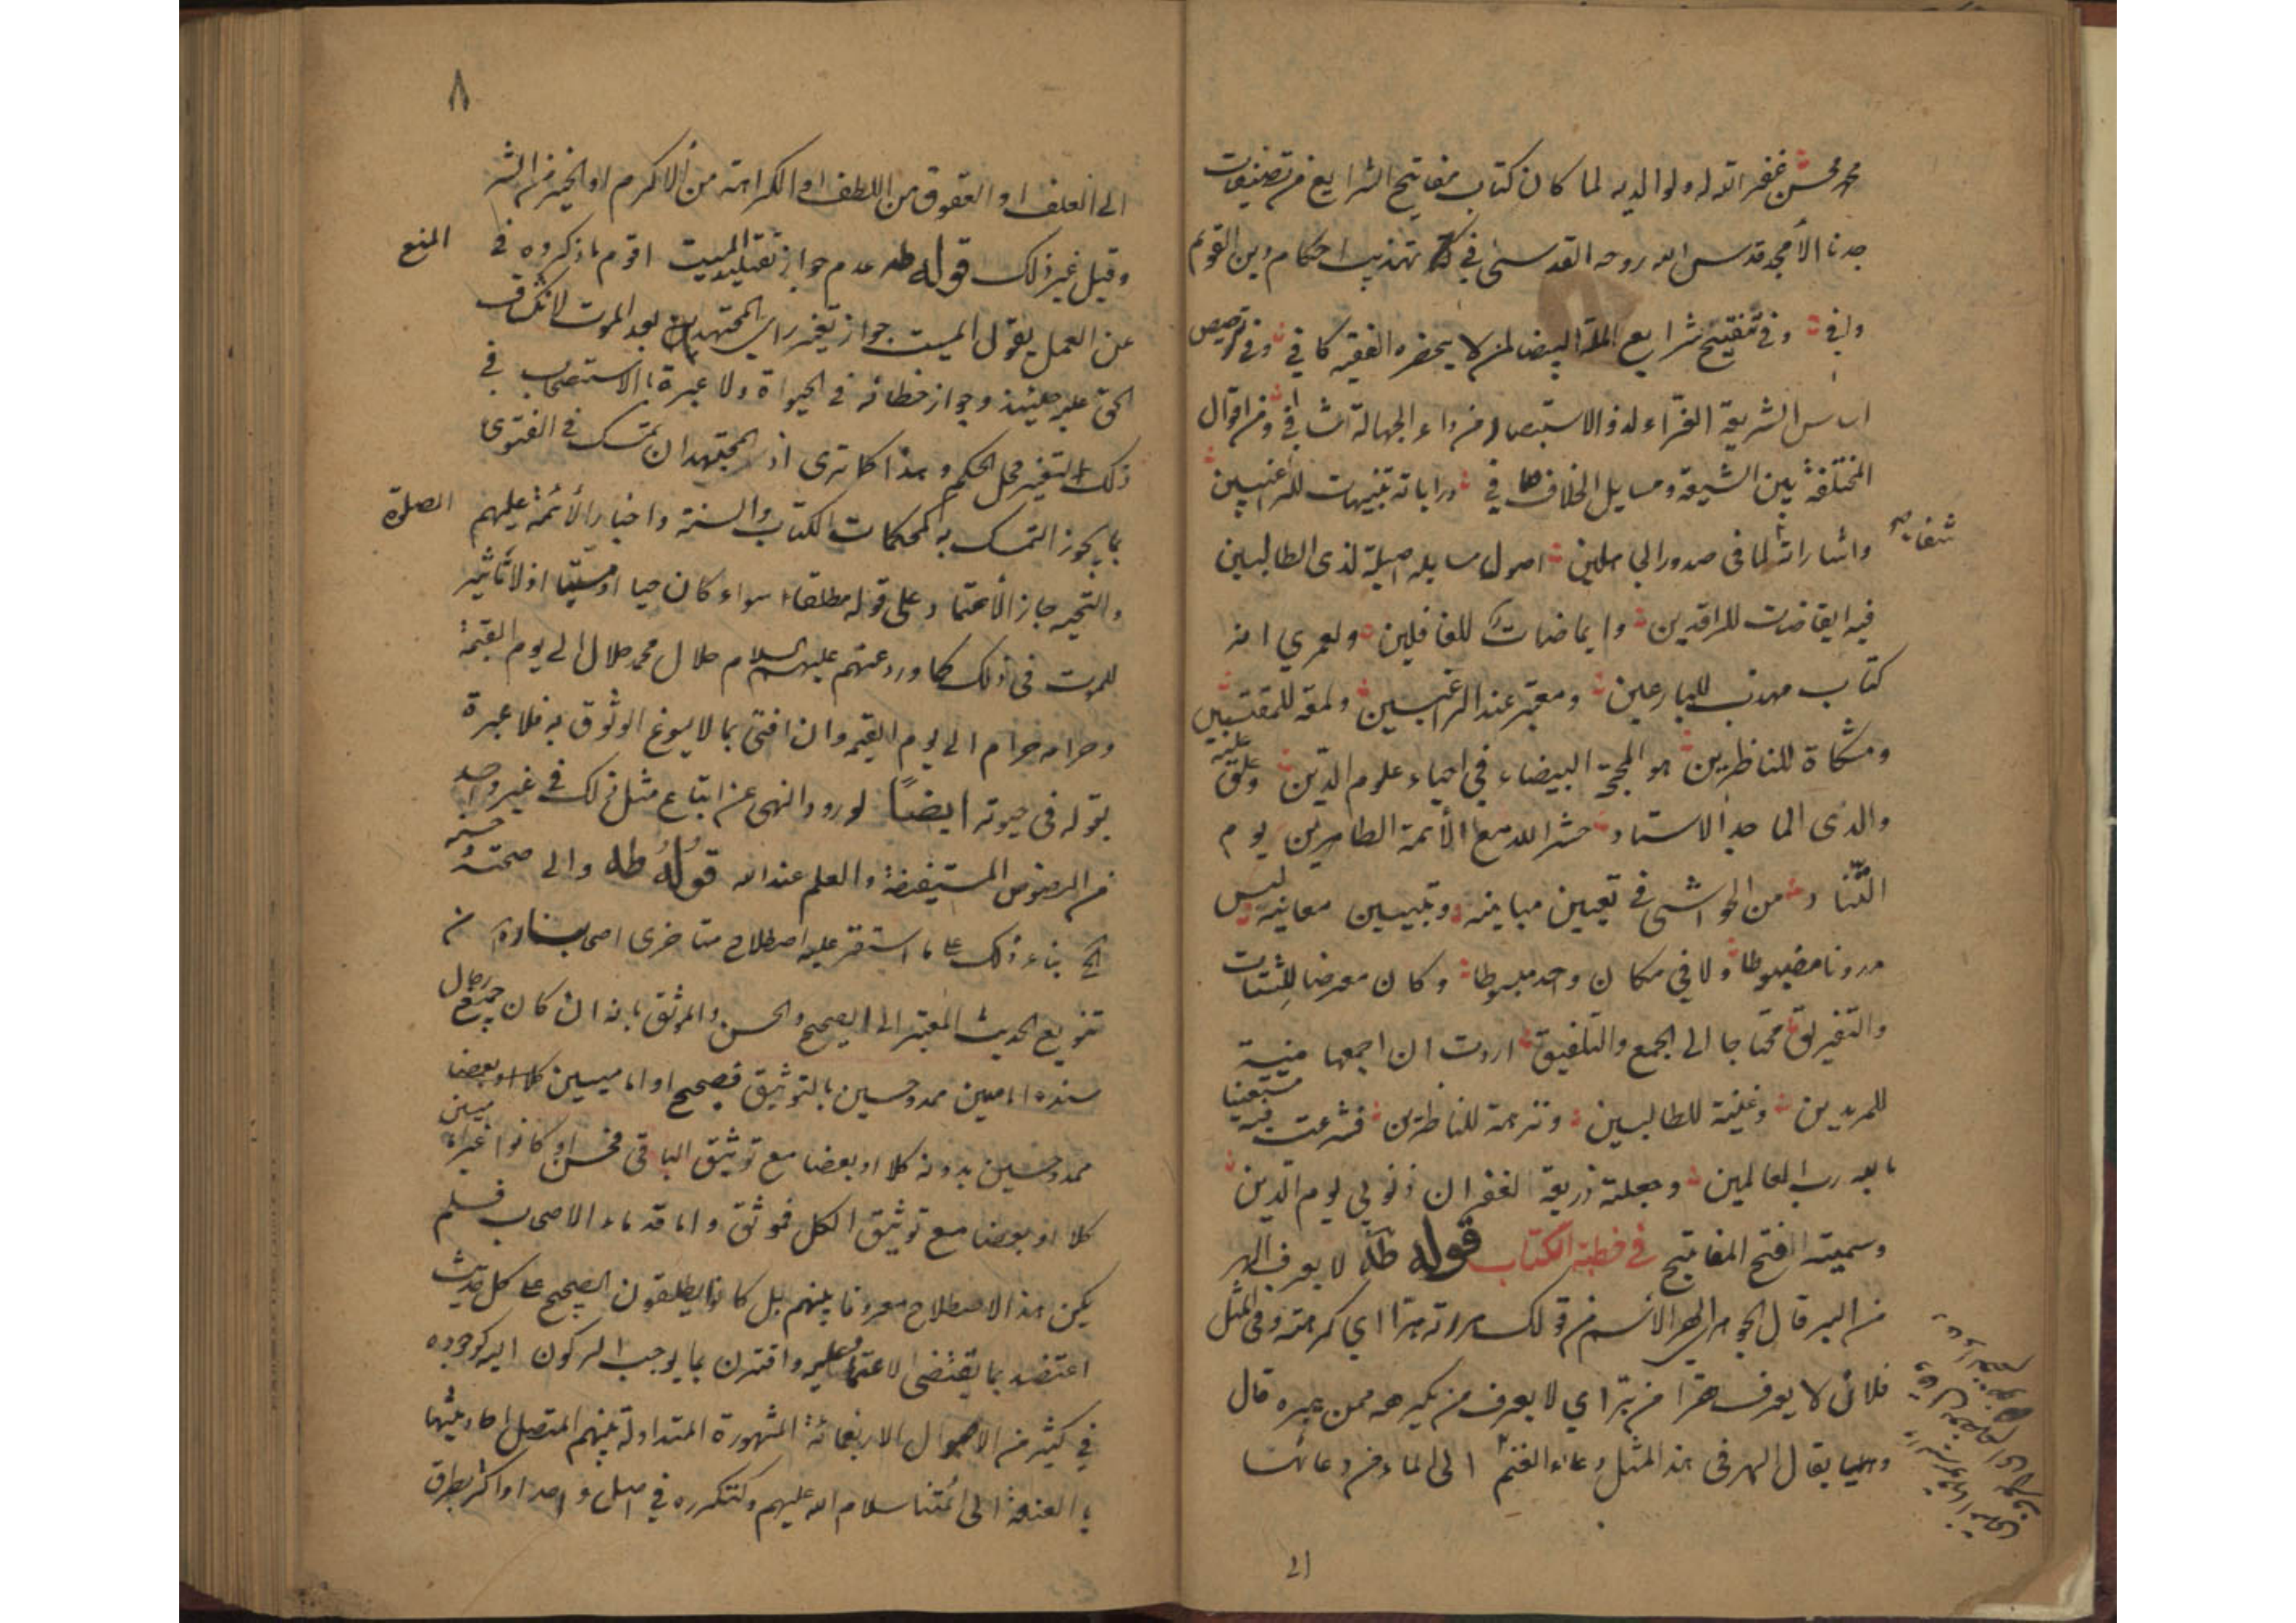 محمد محسن غفر الله له ولوالديه لما كان كتاب مفاتيح الشرايع من تصنيفات
جدنا الأمجد قدس الله روحه القدسى في تهذيب احكام دين القويم
وافي وفي تنقيح شرايع الملة البيضا لمن لا يحضره الفقيه كافي وفي ترصيص
اساس الشريقة الغراء لذو الاستبصار من داء الجهالة شافي ومن اقوال
المختلفة بين الشيعة ومسايل الخلاف في وراياته تنبيهات للراغبين
واشاراته لما فى صدور الجاهلين اصول مسايله اصيلة لذى الطالبين
شفا صح
فيه ايقاضات للراقدين وايماضات للغافلين ولعمري انه
كتاب مهذب للبارعين ومعتبر عند الراغبين ولمعة للمقتبسين
ومشكاة للناظرين هو المحجة البيضاء في احياء علوم الدين وعلق عليه
والدى الماجد الاستاد حشره الله مع الأئمة الطاهرين يوم
التناد من الحواشى في تعيين مبانيه وتبيين معانيه ليس
مدونا مضبوطا ولا في مكان واحد مبسوطا وكان معرضا للشتات
والتفريق محتاجا الى الجمع والتلفيق اردت ان اجمعها منية
للمريدين وغنية للطالبين ونزهة للناظرين فشرعت فيه مستعينا
بالله رب العالمين وجعلته ذريعة لغفران ذنوبي ليوم الدين
وسميته بفتح المفاتيح في خطبة الكتاب قوله طه لا يعرف الهر
من البر قال الجوهرى الهر الأسم من قولك هررته هرا اي كرهته وفى المثل
فلان لا يعرف هرا من بر اي لا يعرف من يكرهه ممن يبره قال
وايضا يقال الهر فى هذا المثل دعاء الغنم الى الماء من دعائها
الى
٨
الى العلف او العقوق من اللطف او الكراهة من الاكرم او الخير من الشر
وقيل غير ذلك قوله طه عدم جواز تقليد الميت اقوم ما ذكروه في المنع
عن العمل بقول الميت جواز تغير راى المجتهد بعد الموت لانكشاف
الحق عليه حينئذ وجواز خطائه في الحيوة ولا عبرة بالاستصحاب في
ذلك التغير محل الحكم وهذا كما ترى اذ المجتهد ان تمسك في الفتوى
بما يجوز التمسك به كمحكمات الكتاب والسنة واخبار الأئمة عليهم الصلوة
والتحيه جاز الأعتماد على قوله مطلقا سواء كان حيا او ميتا اذ لا تأثير
للموت فى ذلك كما ورد عنهم عليهم السلام حلال محمد حلال الى يوم القيمة
وحرامه حرام الى يوم القيمه وان افتى بما لا يسوغ الوثوق به فلا عبرة
بقوله فى حيوته ايضا لورود النهى عن اتباع مثل ذلك في غير واحد
من النصوص المستفيضة والعلم عند الله قوله طه والى صحته وحسنه
الخ بناء ذلك على ما استقر عليه اصطلاح متاخرى اصحابنا ره من
تنويع الحديث المعتبر الى الصحيح والحسن والموثق بانه ان كان جميع رجال
سنده اماميين ممدوحين بالتوثيق فصحيح او اماميين
ممدوحين بدونه كلا او بعضا مع توثيق الباقى فحسن او كانوا غير اماميين
كلا او بعضا مع توثيق الكل فموثق واما قدماء الاصحاب فلم
يكن هذا الاصطلاح معروفا بينهم بل كانوا يطلقون الصحيح على كل حديث
اعتضد بما يقتضى الاعتماد عليه واقترن بما يوجب الركون اليه كوجوده
في كثير من الاصول الاربعمائة المشهورة المتداولة بينهم المتصل احاديثها
بالعنعنة الى ائمتنا سلام الله عليهم ولتكرره في اصل واحد او اكثر بطرق